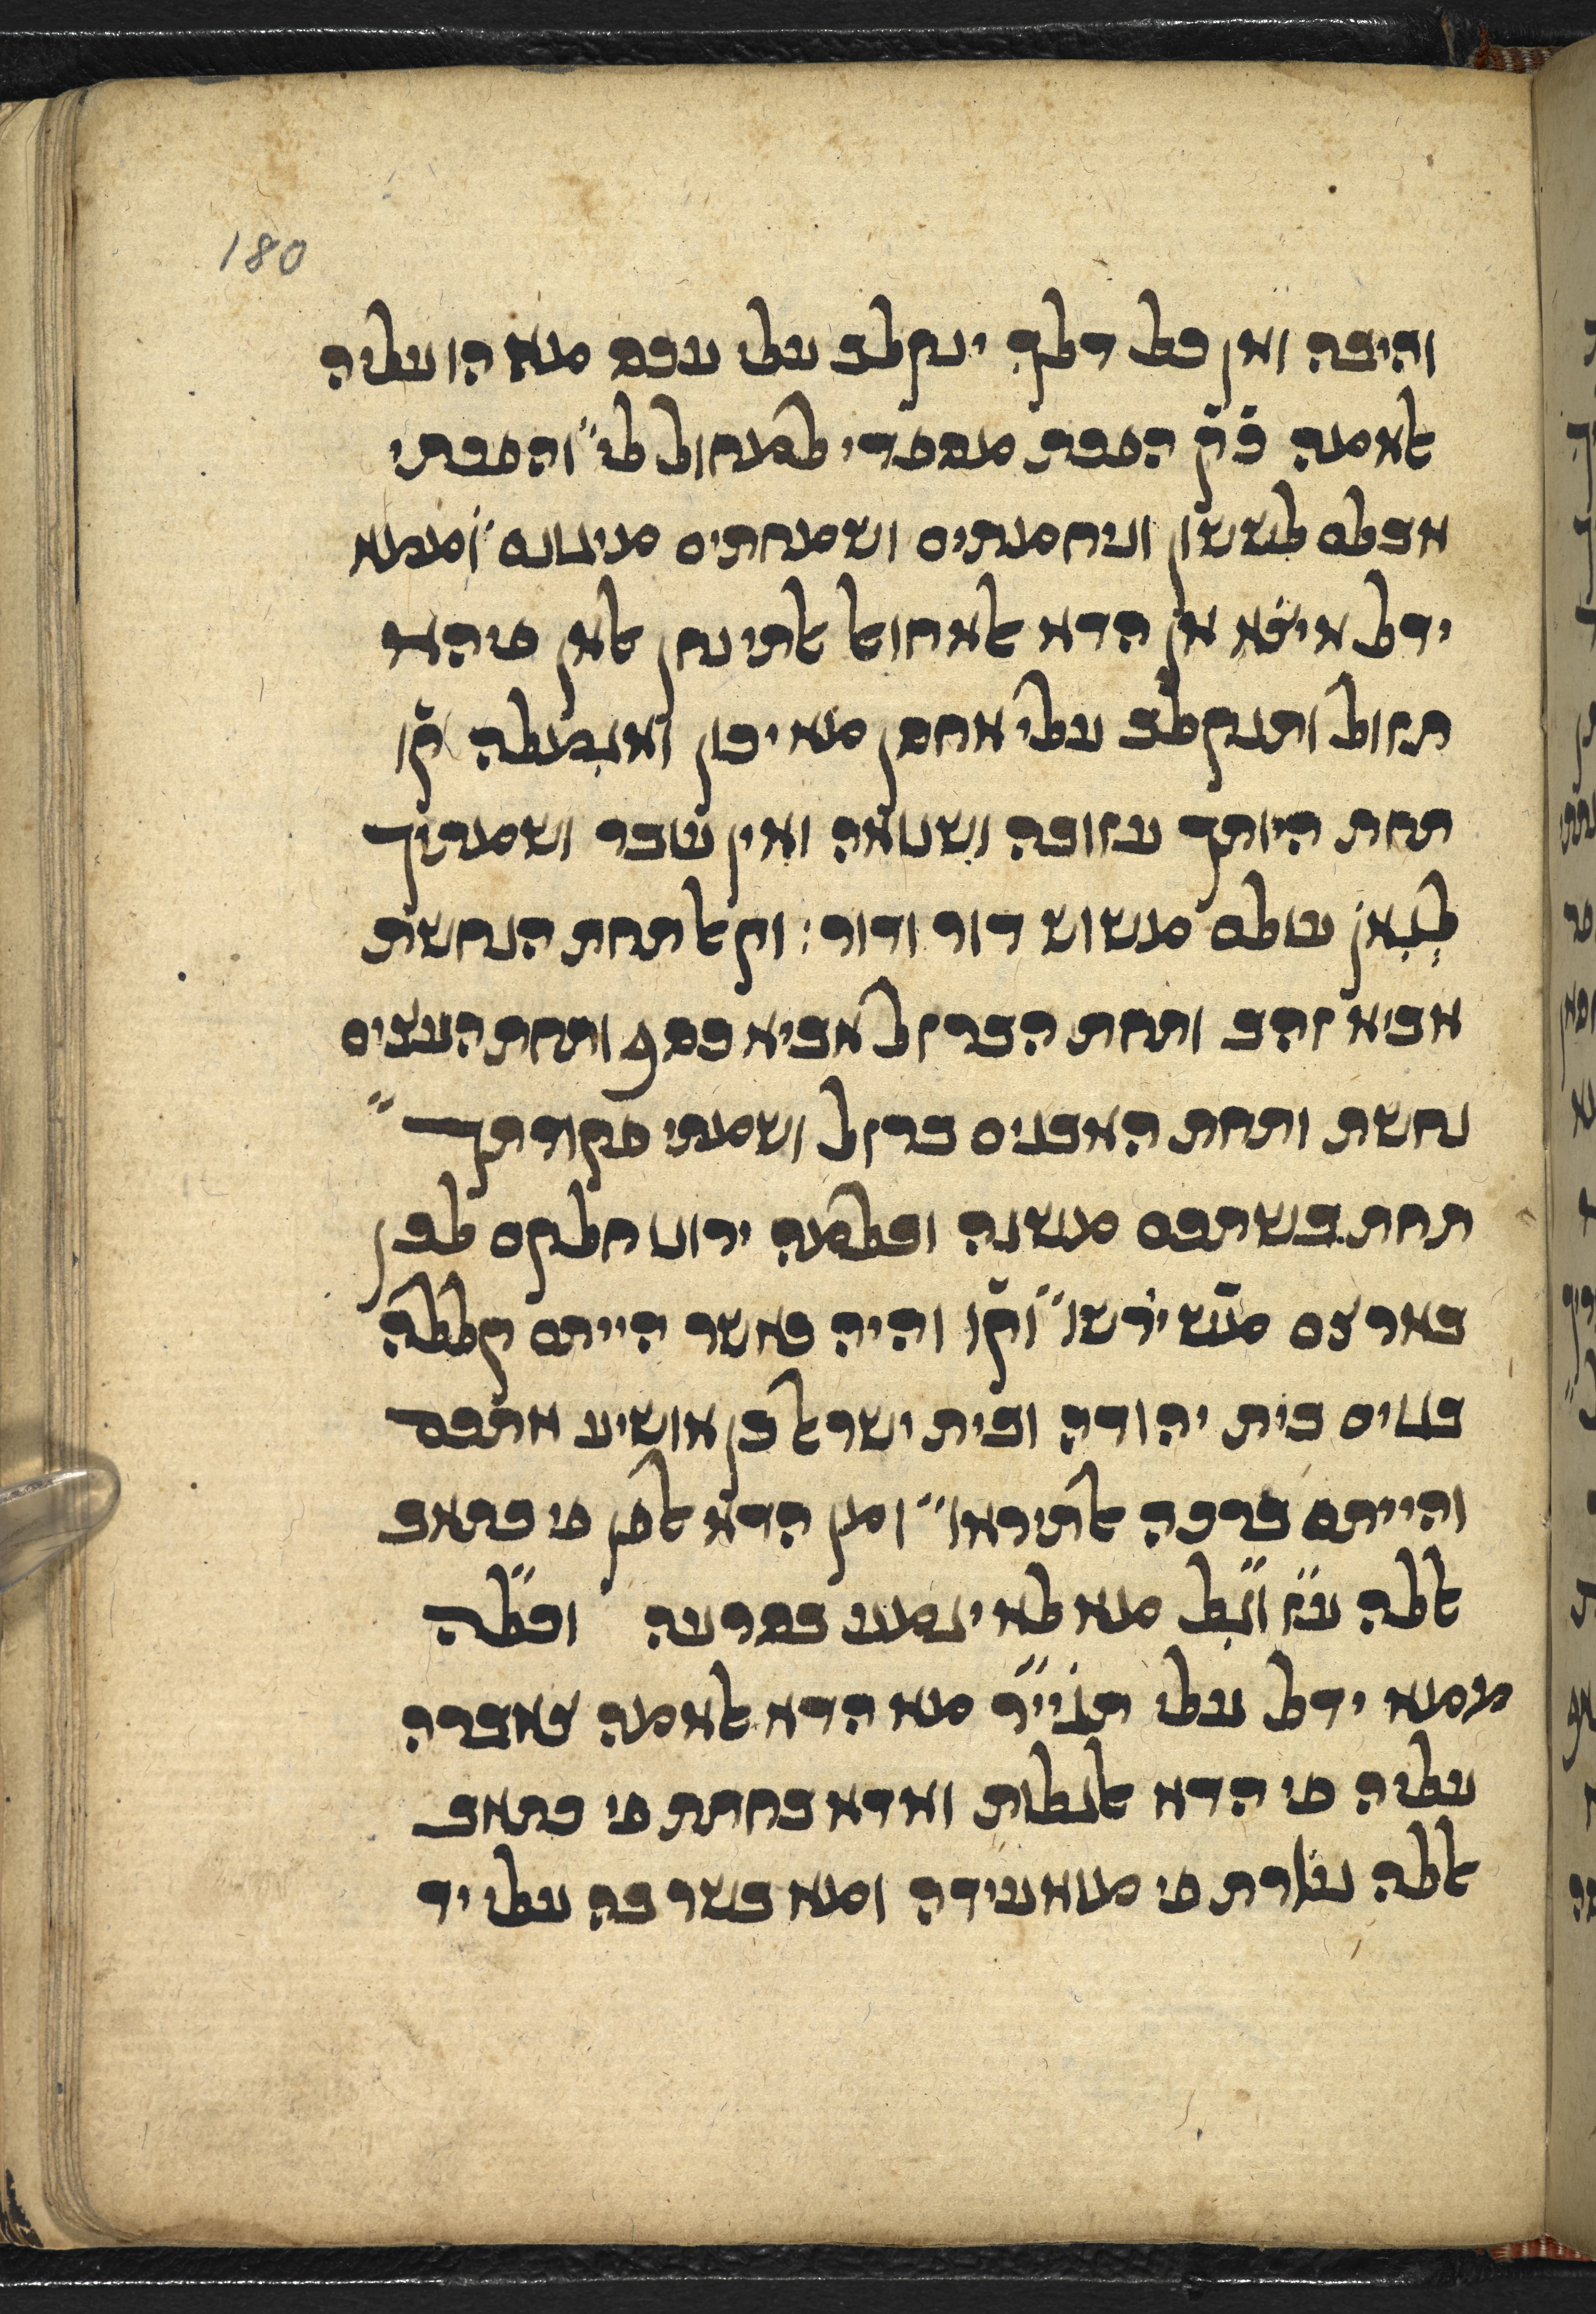 180
והיבה ואן כל דלך ינקלב עלי עכס מא הו עליה
אלאמה כ̇ק̇ הפכת מספדי למחול לי״ והפכתי
אבלם לששון וניחמתים ושמחתים מיגונם ומ 
ידל איצ̇א אן הדא אלאחואל אלתי נחן אלאן פיהא
תזול ותנקלב עלי אחסן מא יכון ואגמלה ק̇ו
תחת היותך עזובה ושנואה ואין עובר ושמתיך
לגאון עולם משוש דור ודור: וק אל תחת הנחשת
אביא זהב ותחת הברזל אביא כסף ותחת העצים
נחשת ותחת האבנים ברזל ושמתי פקודתך״
תחת בשתכם משנה וכלמה ירונו חלקם לכן
בארצם משנ ירשו״ וק̇ו והיה כאשר הייתם קללה
בגוים בית יהודה ובית ישראל כן אושיע אתכם
והייתם ברכה אל תיראו״ ומן הדא אלפן פי כתאב
אללה עז וגל מא לא יגמע בסרעה וכלה
ממא ידל עלי תגייר מא הדא אלאמה צאברה
עליה פי הדא אלגלות ואדא בחתת פי כתאב
אללה נט̇רת פי מואעידה ומא בשר בה עלי יד